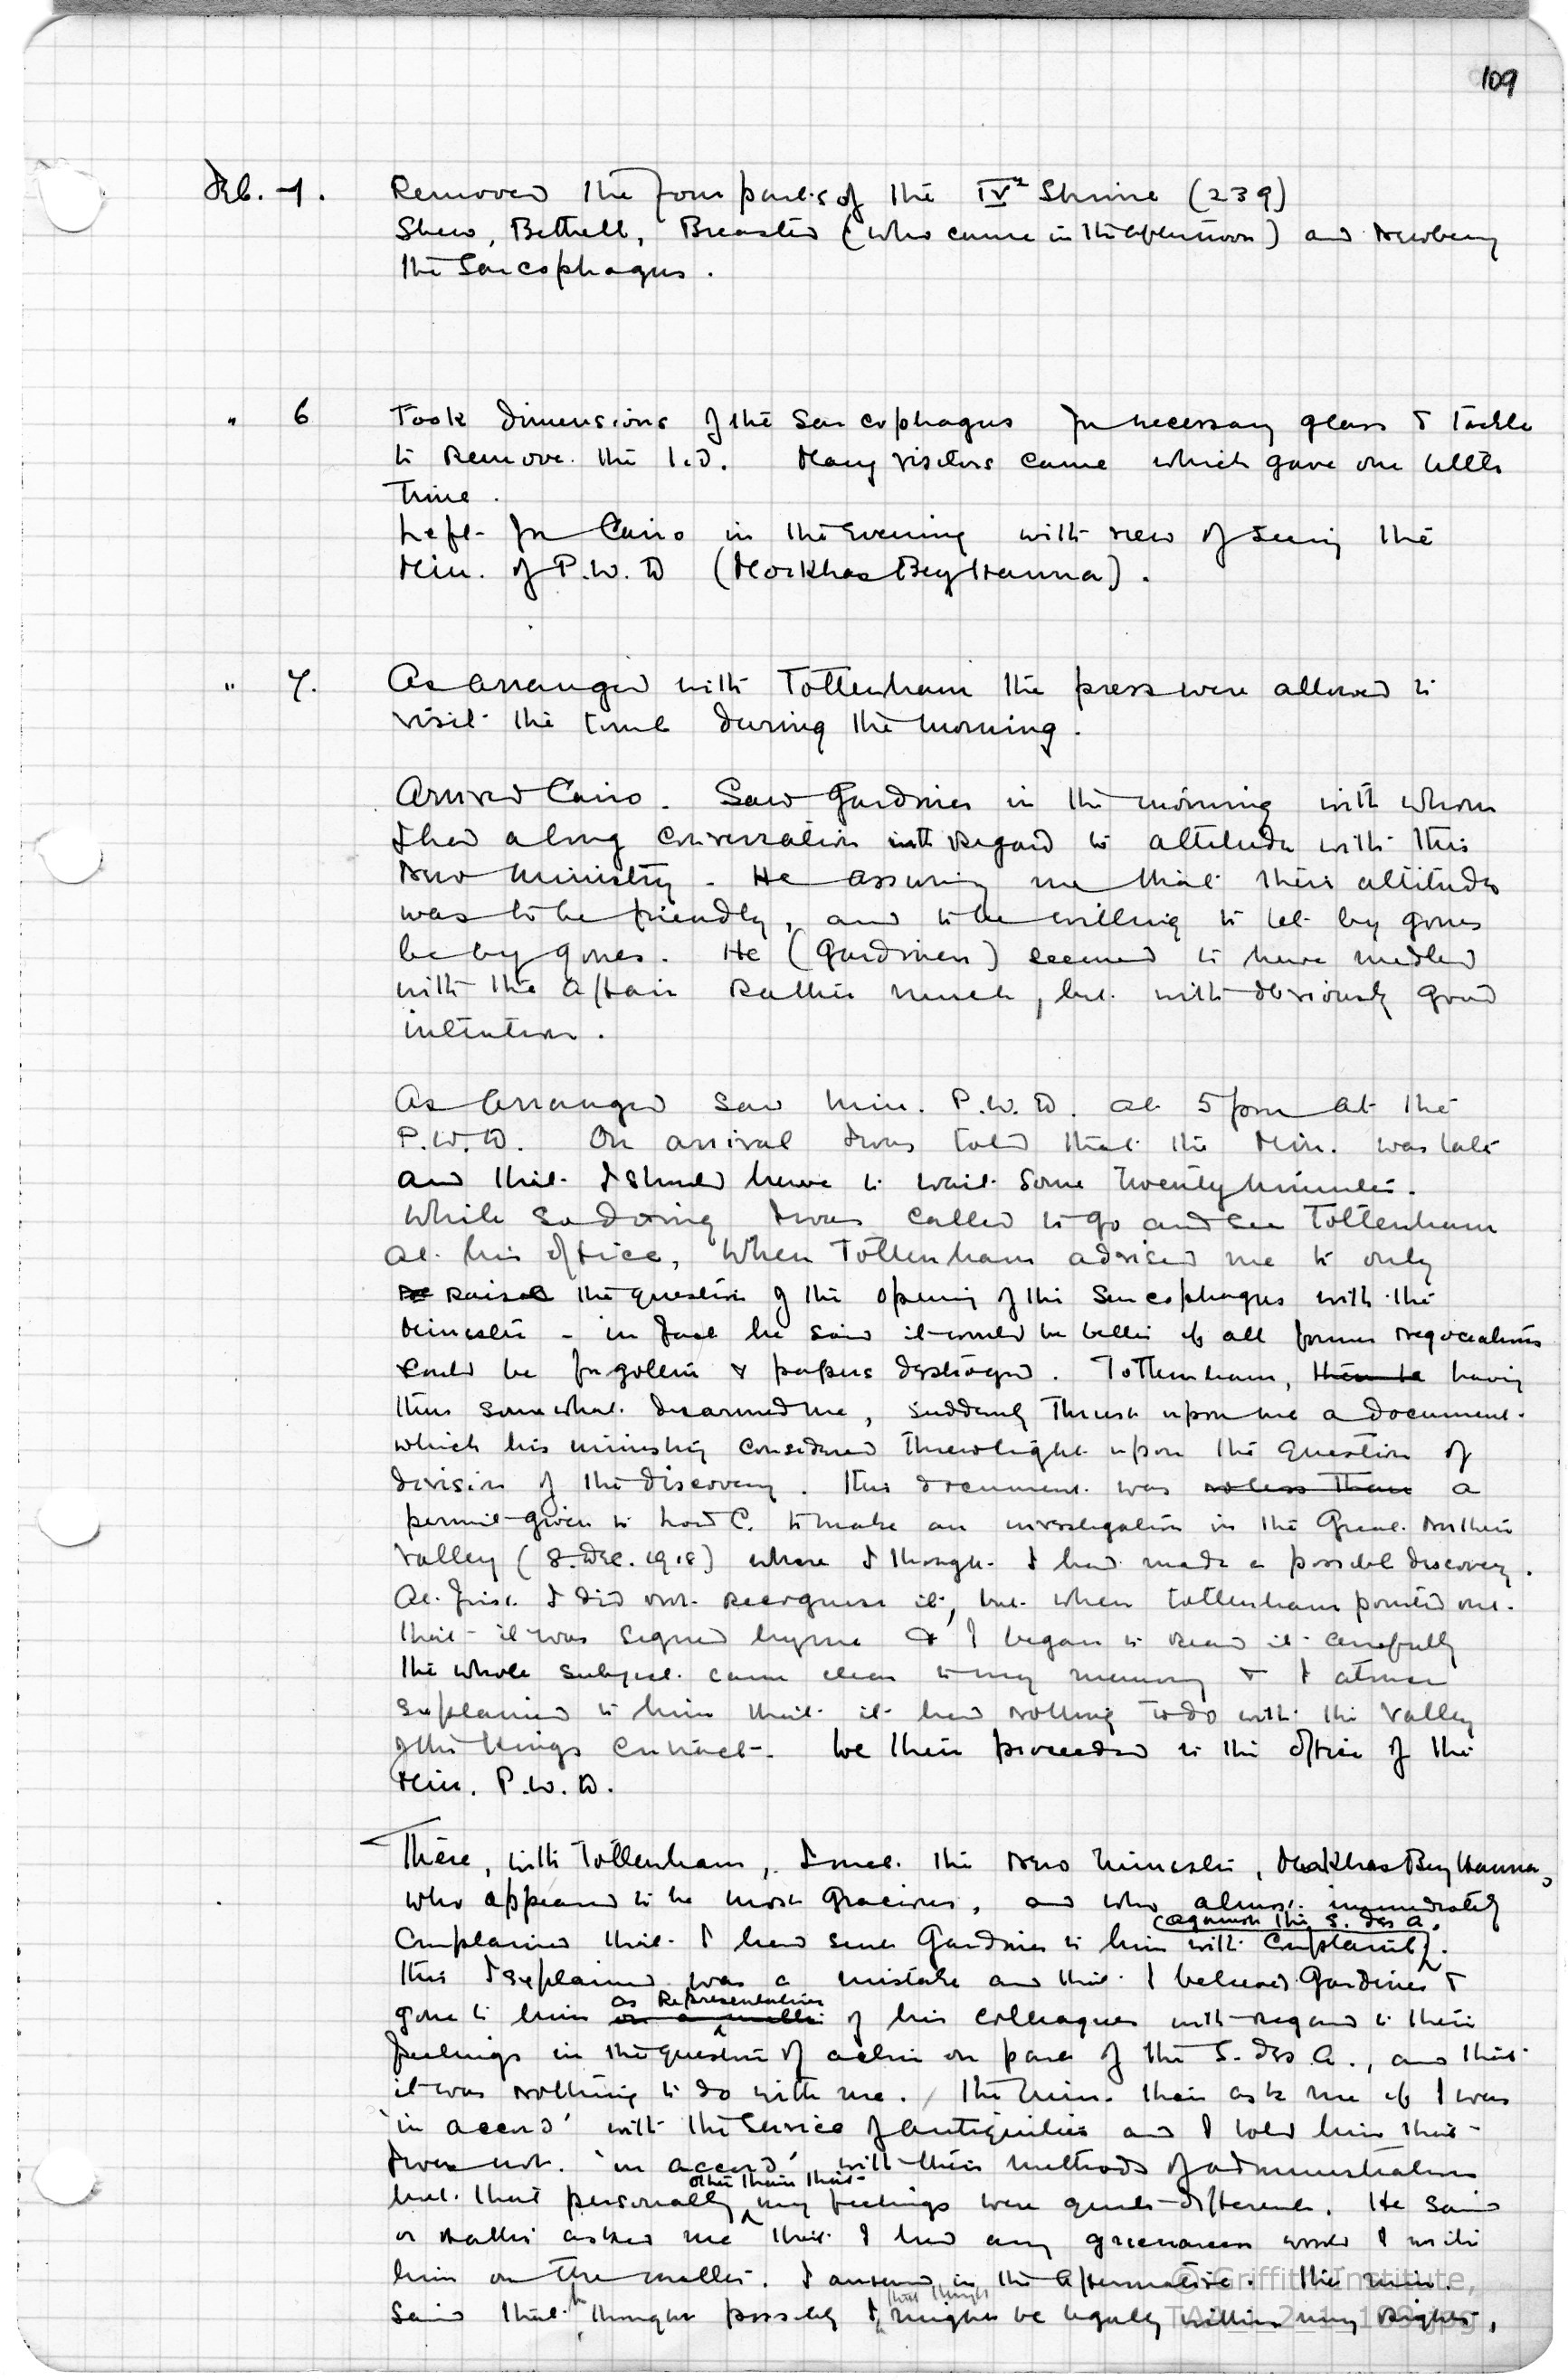 109
Feb. 4. Removed the four parts of the IVth Shrine (239)
Shew, Bethell, Breasted (who came in the afternoon) and Newberry
the Sarcophagus.
" 6 Took dimensions of the Sarcophagus for necessary gear & tackle
to remove the lid. Many visitors came which gave one little
time.
Left for Cairo in the evening with view of seeing the
Min. of P.W.D (Morkhos Bey Hanna).
" 7. As arranged with Tottenham the press were allowed to
visit the tomb during the morning.
Arrived Cairo. Saw Gardiner in the morning with whom
I had a long conversation with regard to attitude with this
new ministry. He assuring me that their attitude
was to be friendly, and to be willing to let by gones
be by gones. He (Gardiner) seemed to have medled
with the affair rather much, but with obviously good
intention.
As arranged saw Min. P.W.D. at 5 pm at the
P.W.D. On arrival I was told that the Min. was late
and that I should have to wait some twenty minutes.
While so doing I was called to go and see Tottenham
at his office, when Tottenham advised me to only
raise the question of the opening of the Sarcophagus with the
Minister - in fact he said it would be better if all former negociations
could be forgotten & papers destroyed. Tottenham, then he having
thus somewhat disarmed me, suddenly thrust upon me a document
which his ministry considered threw light upon the question of
division of the discovery. This document was no less than a
permit given to Lord C. to make an investigation in the Great Northern
Valley (8. Dec. 1918) where I thought I had made a possible discovery.
At first I did not recognise it, but when Tottenham pointed out
that it was signed by me & I began to read it carefully
the whole subject came clear to my memory & I at once
explained to him that it had nothing to do with the Valley
of the Kings contract. We then proceeded to the office of the
Min. P.W.D.
There, with Tottenham, I met the new Minister, Morkhos Bey Hanna,
who appeared to be most gracious, and who almost immediately
(against the S. des A.
complained that I had sent Gardiner to him with complaints).
This I explained was a mistake and that I believed Gardiner &
as representation
gone to him on a matter of his colleagues with regard to their
feelings in the question of action on part of the S. des A., and that
it was nothing to do with me. The Min. then ask me if I was
'in accord' with the Service of Antiquities and I told him that
I was not 'in accord' with their methods of administration
other than that
but that personally my feelings were quite different. He said
or rather asked me that I had any grievances would I write
him on the matter. I answered in the affirmative. The Min.
that things
said that he thought possibly I might be legally within my rights,
© Griffith Institute,